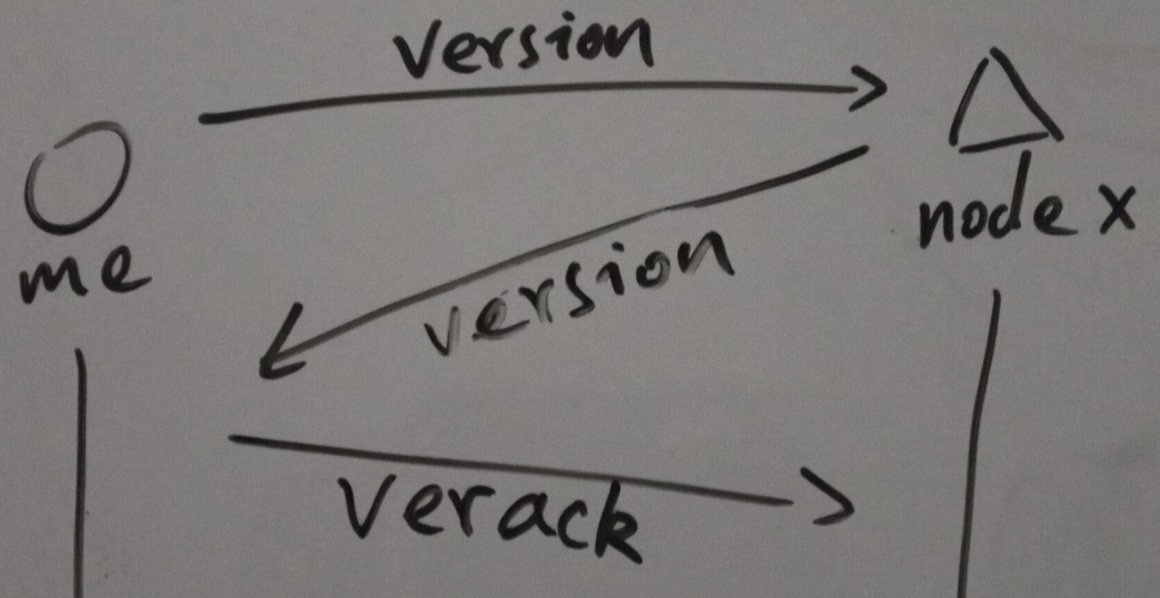 version
me
node x
version
verack